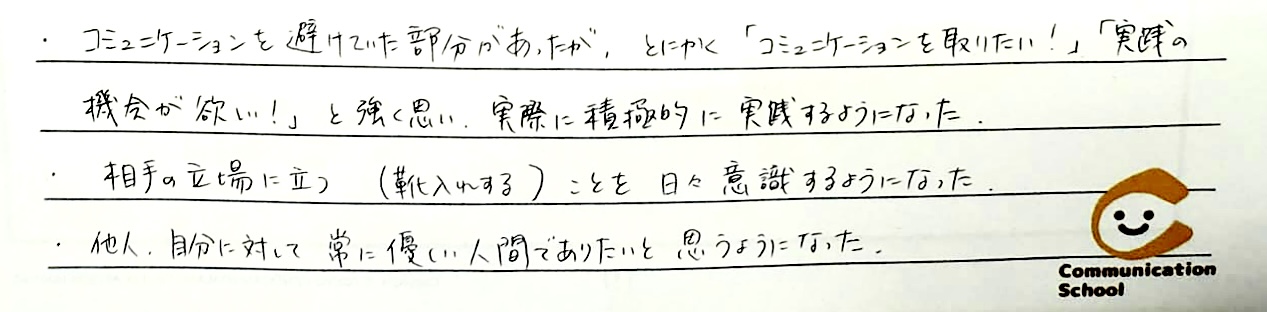 ・ コミュニケーションを避けていた部分があったが、とにかく「コミュニケーションを取りたい！」「実践の
機会が欲い！」と強く思い、実際に積極的に実践するようになった．
・ 相手の立場に立つ （靴入れする）ことを日々意識するようになった．
・ 他人、自分に対して常に優しい人間でありたいと思うようになった．
Communication
School